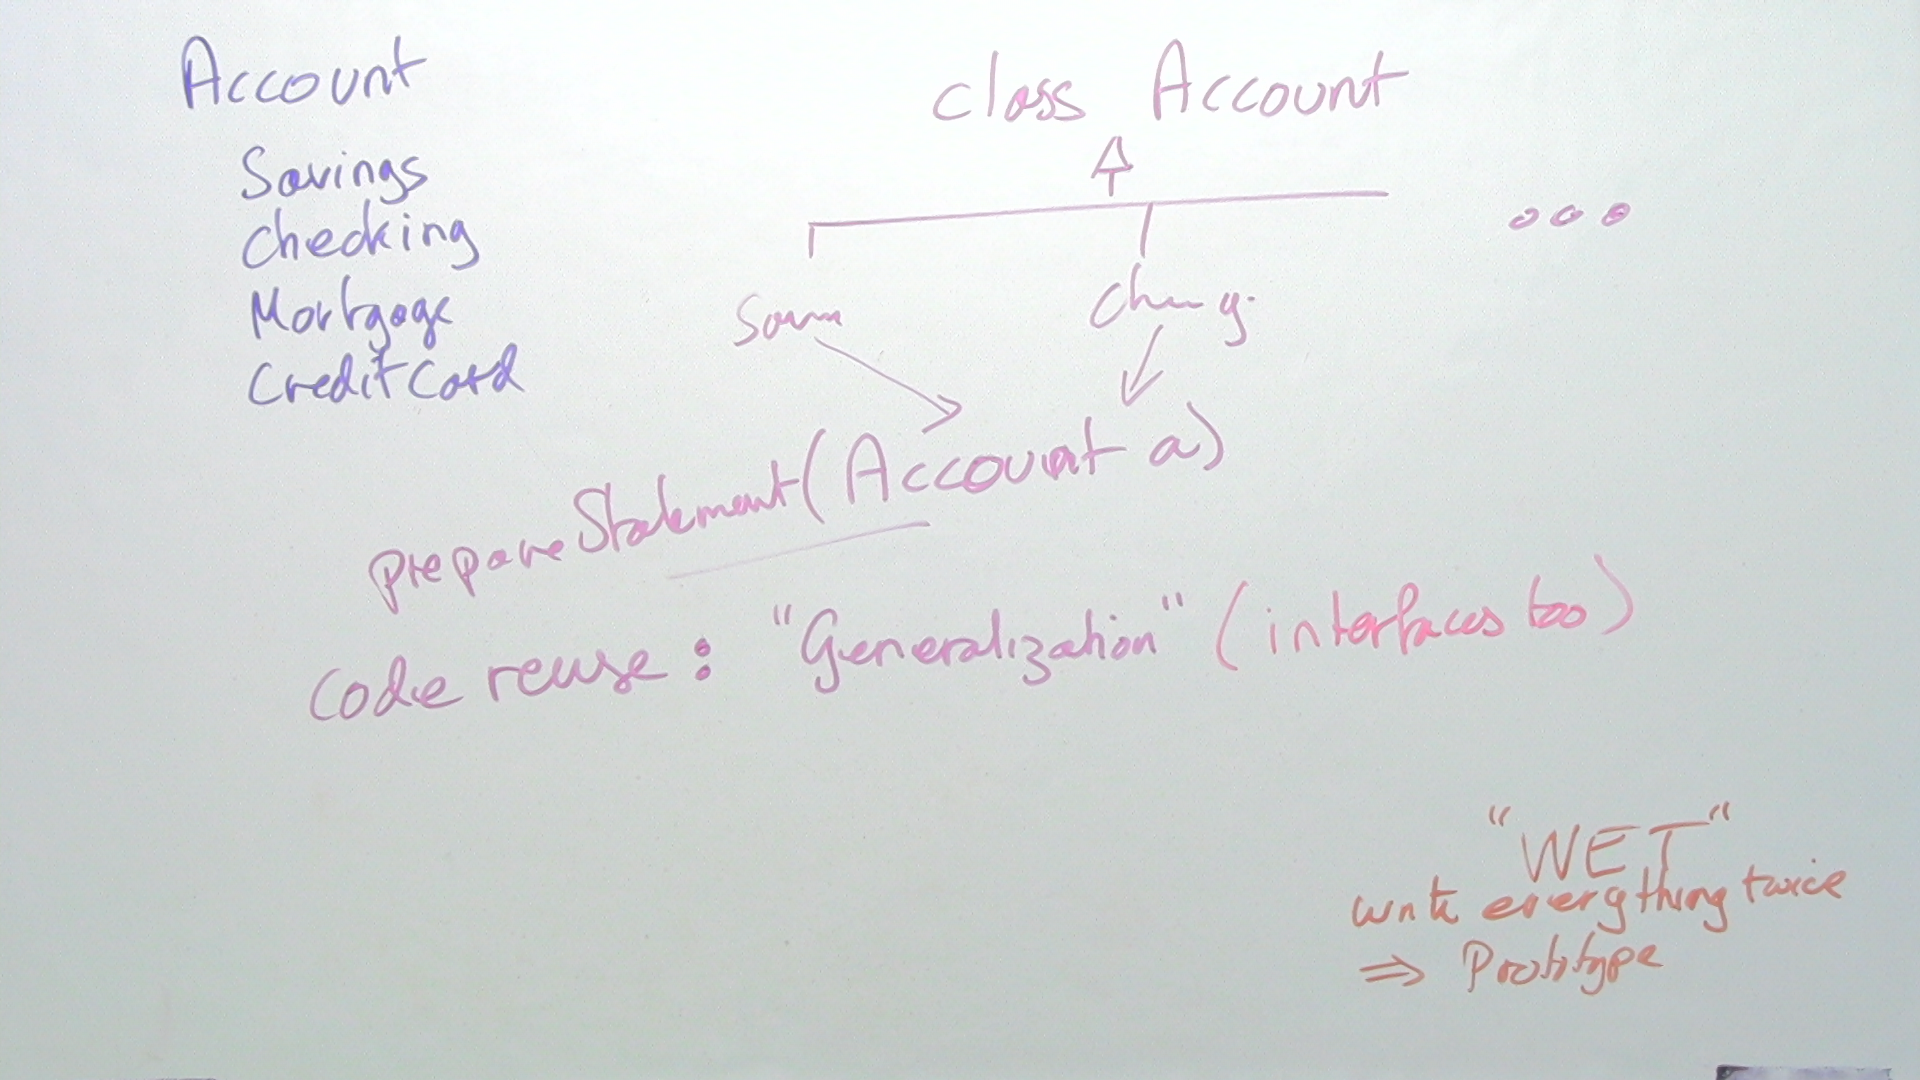 Account
Savings
Checking
Mortgage
CreditCard
class Account
prepareStatement(Account a)
Code reuse: "Generalization" (interfaces too)
"WET"
write everything twice
⇒ Prototype